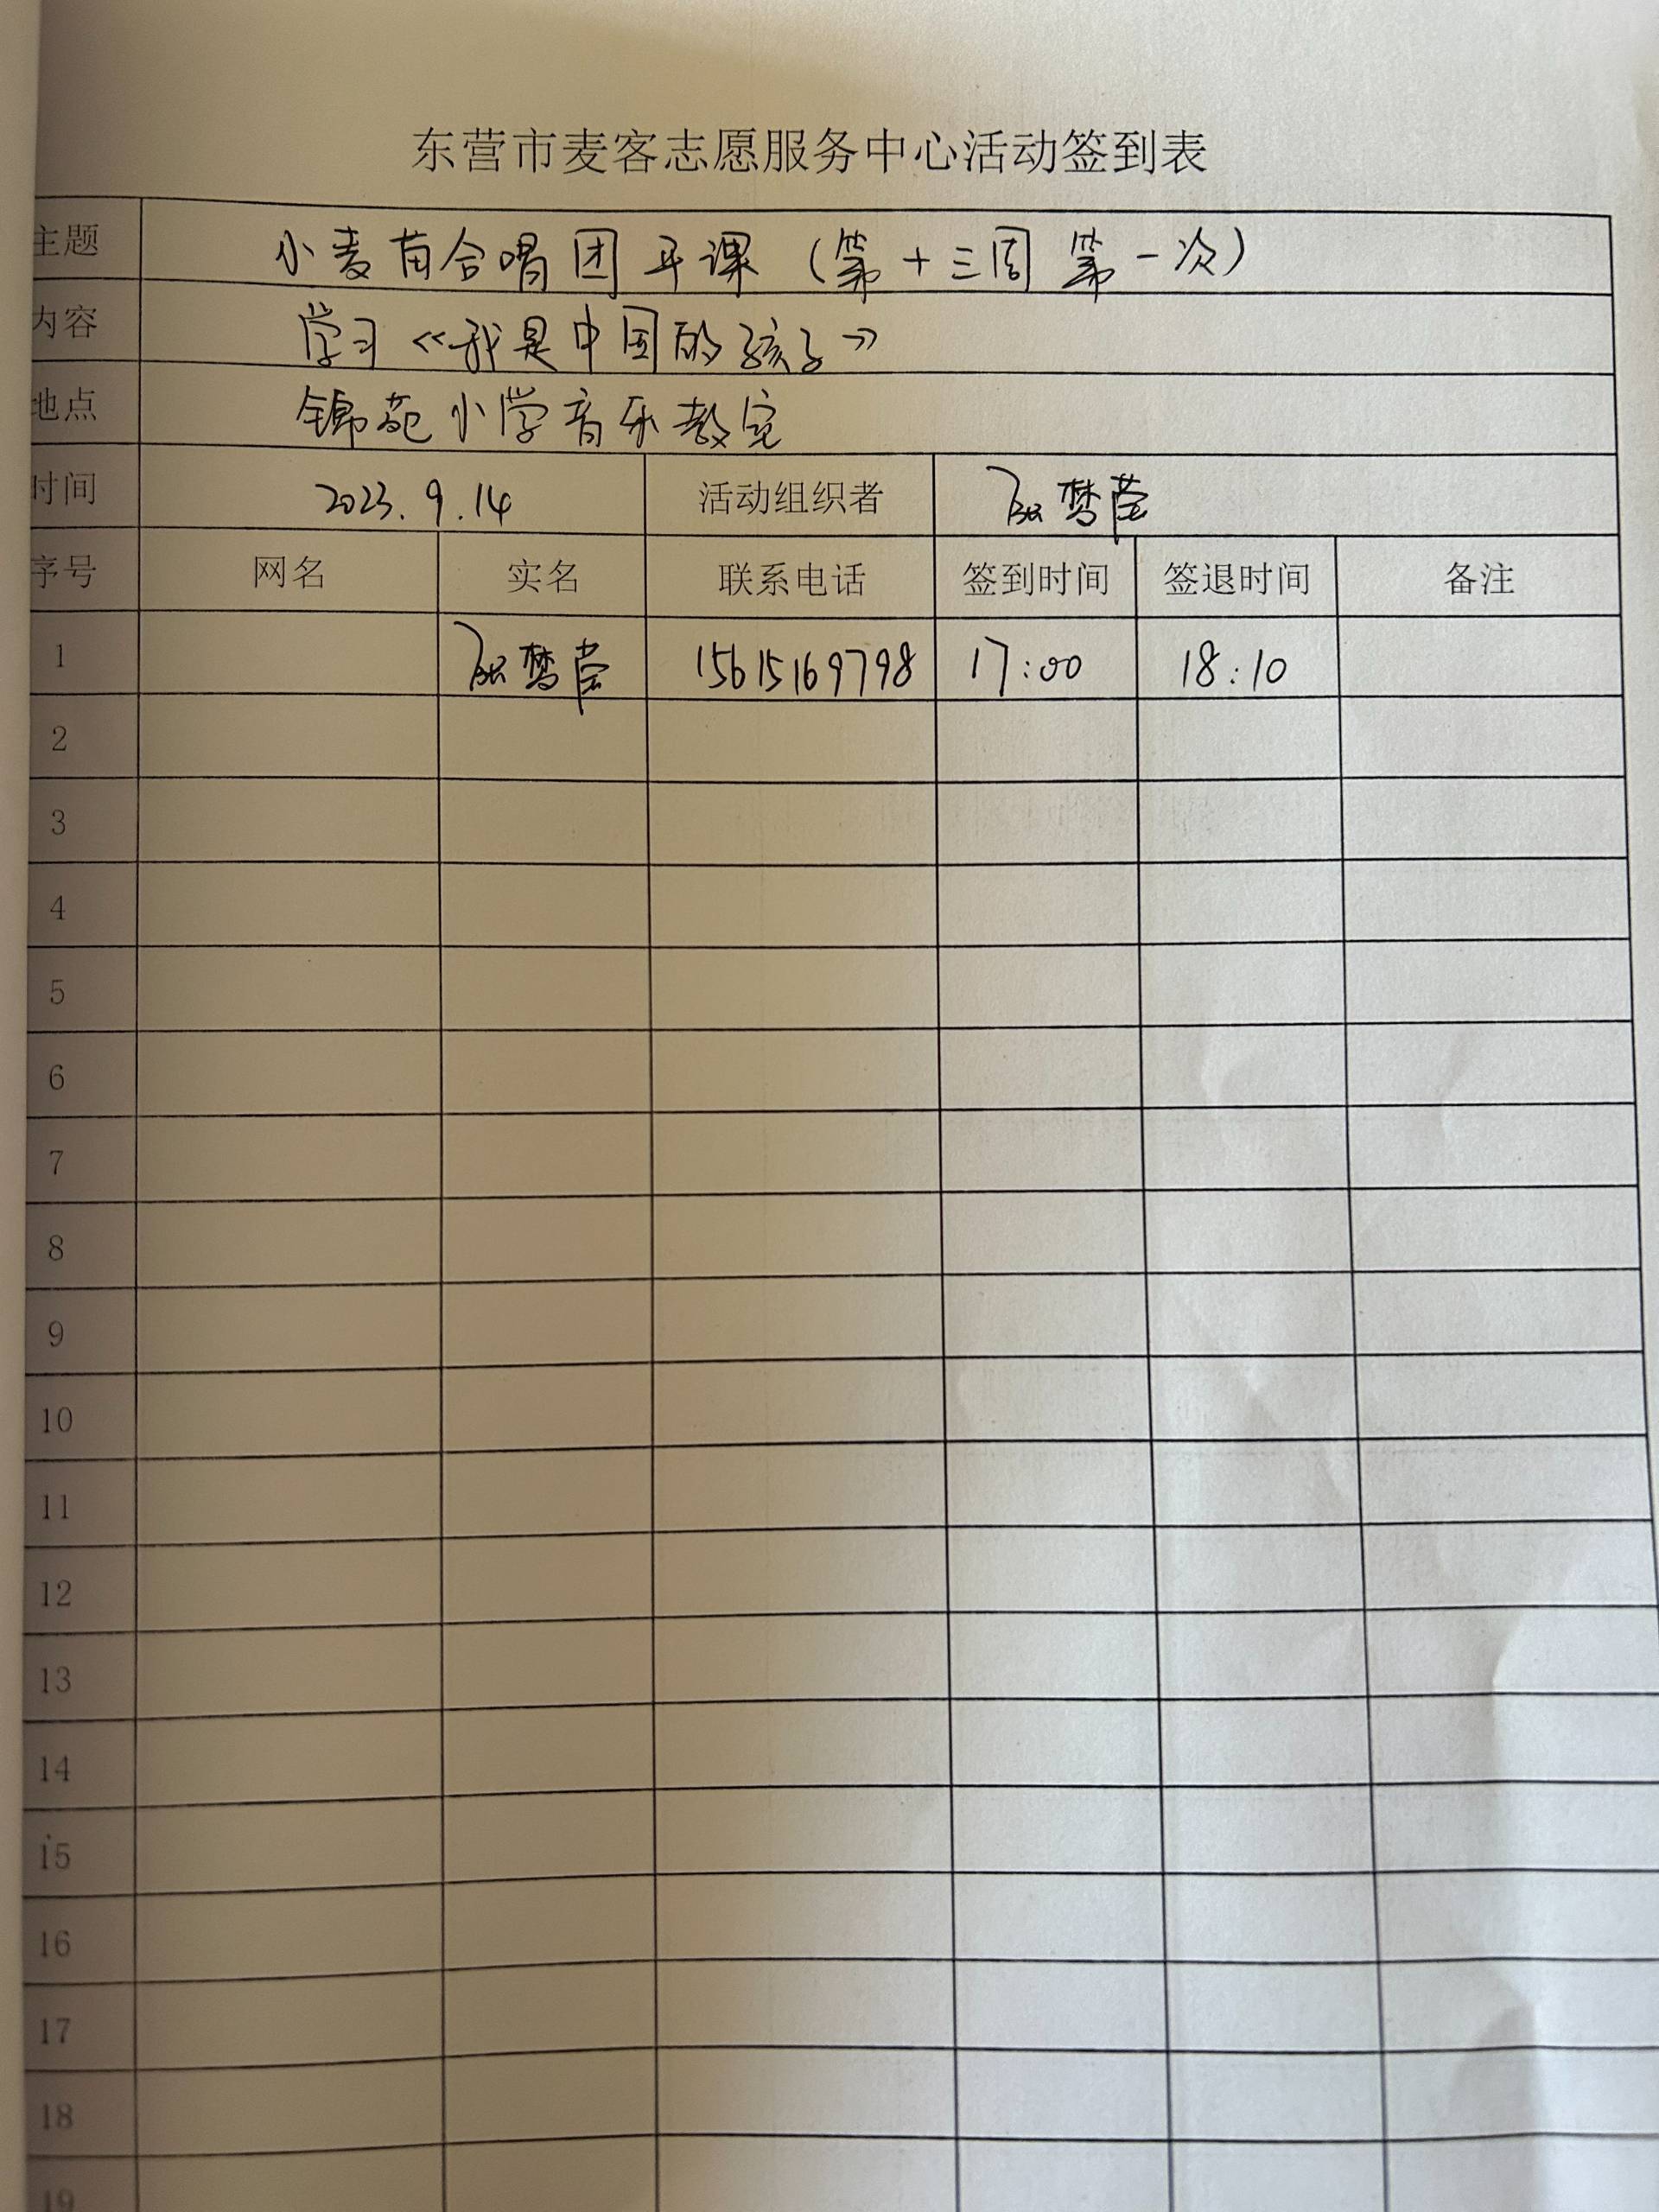 东营市麦客志愿服务中心活动签到表
主题 小麦苗合唱团开课（第十三周 第一次）
内容 学习《我是中国的孩子》
地点 锦苑小学音乐教室
时间 2023.9.14 活动组织者 梦莹
序号 网名 实名 联系电话 签到时间 签退时间 备注
1 梦莹 15615169798 17:00 18:10
2
3
4
5
6
7
8
9
10
11
12
13
14
15
16
17
18
19